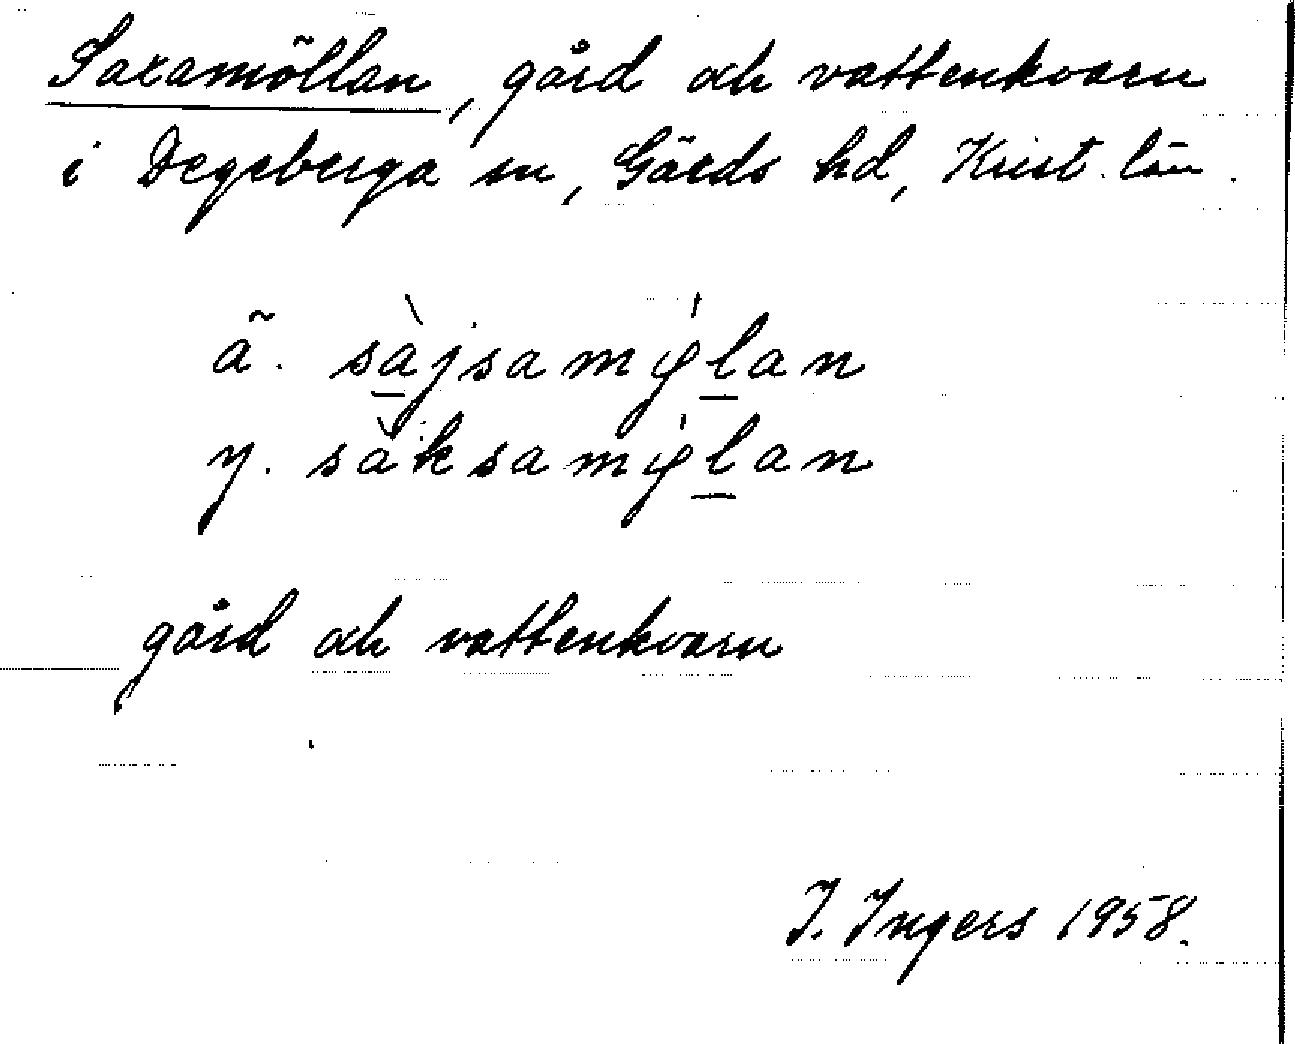 Saxamöllan, gård och vattenkvarn
i Degeberga sn, Gärds hd, Krist. län.
ä. sàjsamǿlan
y. sàksamǿlan
gård och vattenkvarn
I. Ingers 1958.